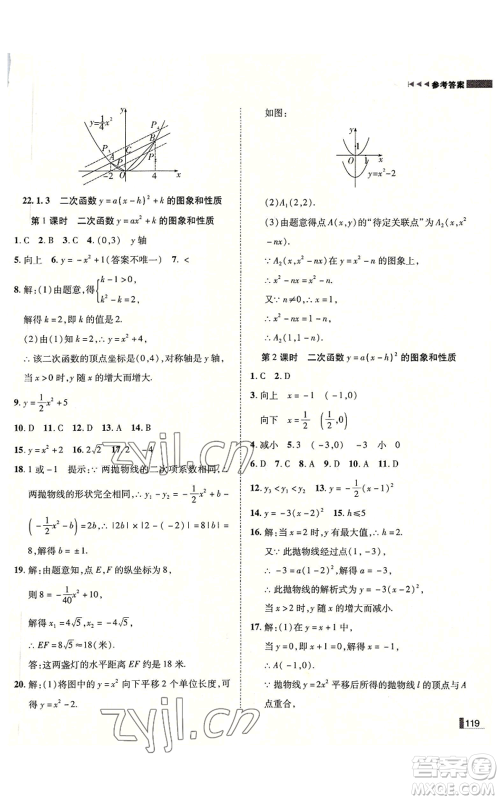 ◀◀◀ 参考答案
y=1/4x² y P₁ P₂ P₃ A P₄ -2 O 4 x
22.1.3 二次函数 y=a(x-h)²+k 的图象和性质
第1课时 二次函数 y=ax²+k 的图象和性质
1. C 2. D 3. D 4. (0,3) y 轴
5. 向上 6. y=-x²+1(答案不唯一) 7. <
8. 解:(1)由题意,得{k-1>0, k²-k=2,
解得 k=2,即 k 的值是 2.
(2)由(1)知 k=2,∴ y=x²+4,
∴ 该二次函数的顶点坐标是(0,4),对称轴是 y 轴,
当 x>0 时,y 随 x 的增大而增大.
9. y=-1/2x²+5
10. D 11. D 12. D 13. A 14. B
15. y=x²+2 16. 2√2 17. 2
18. 1 或 -1 提示:∵ 两抛物线的二次项系数相同,∴
两抛物线的形状完全相同,∴ y₁-y₂=1/2x²+b-
(1/2x²-b)=2b,∴ |2b|×|2-(-2)|=|2b|×4=
8,解得 b=±1.
19. 解:由题意知,点 E,F 的纵坐标为 8,
则 8=-1/40x²+10,
解得 x=4√5 或 x=-4√5,
∴ EF=8√5≈18(米).
答:这两盏灯的水平距离 EF 约为 18 米.
20. 解:(1)将图中的图象向下平移 2 个单位长度,可
得 y=x²-2.
如图:
y O x y=x²-2
(2)A₁(2,2).
(3)由题意得 A(x,y)的“待定关联点”为 A₂(x,
x²-nx).
∵ A₂(x,x²-nx)在 y=x²-2 的图象上,
∴ x²-nx=x²-n.
又∵ n≠0,∴ x=1.
∴ x²-n=1-n.
∴ A₂(1,1-n).
第2课时 二次函数 y=a(x-h)² 的图象和性质
1. C 2. D
3. 向上 x=-1 (-1,0)
向下 x=1/2 (1/2,0)
4. 减小 5. 3 (-3,0) 大 小 0
6. D 7. A 8. B 9. C 10. D 11. D
12. y₃<y₁<y₂ 13. y=-1/2(x-1)²
14. y=-3(x-2)² 15. h≤5
16. 解:(1)∵ 当 x=2 时,y 有最大值,∴ h=2.
又∵ 此抛物线经过点(1,-3),
∴ -3=a(1-2)²,解得 a=-3.
∴ 此抛物线的解析式为 y=-3(x-2)².
(2)当 x>2 时,y 随 x 的增大而减小.
17. 解:(1)在 y=x+1 中,
令 y=0,得 x=-1,
∴ A(-1,0).
∵ 抛物线 y=2x² 平移后的抛物线 l 的顶点与点
A 重合,
zyjl.cn
zyjl.cn
119